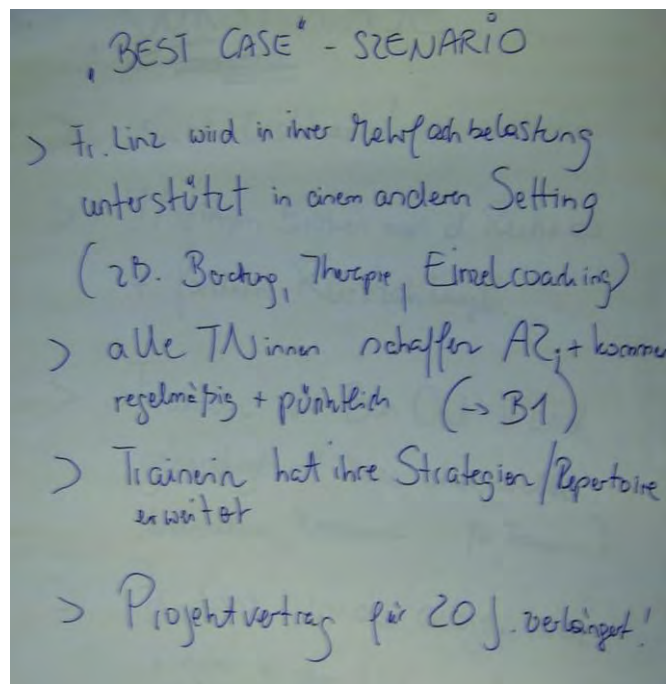 „BEST CASE" - SZENARIO
> Fr. Linz wird in ihrer Mehrfachbelastung
unterstützt in einem anderen Setting
(zB. Beratung, Therapie, Einzelcoaching)
> alle TNinnen schaffen A2, + kommen
regelmäßig + pünktlich (→ B1)
> Trainerin hat ihre Strategien/Repertoire
erweitert
> Projektvertrag für 20 J. verlängert!